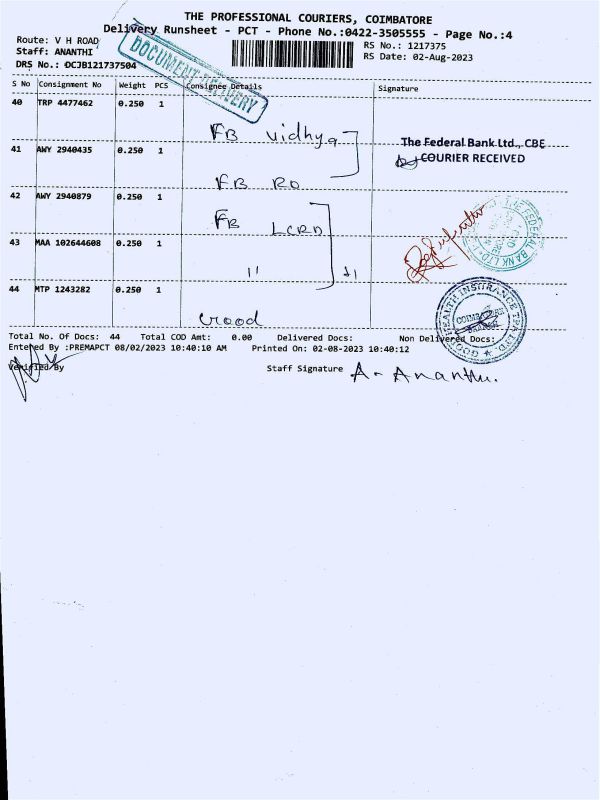 THE PROFESSIONAL COURIERS, COIMBATORE
Delivery Runsheet - PCT - Phone No.:0422-3505555 - Page No.:4
Route: V H ROAD
Staff: ANANTHI
DRS No.: DCJB121737504
RS No.: 1217375
RS Date: 02-Aug-2023
DOCUMENT DELIVERY
S No Consignment No Weight PCS Consignee Details Signature
40 TRP 4477462 0.250 1
FB Vidhya
The Federal Bank Ltd., CBE
COURIER RECEIVED
41 AWY 2940435 0.250 1
FB RO
42 AWY 2940879 0.250 1
FB LCRD
THE FEDERAL BANK LTD
43 MAA 102644608 0.250 1
"
44 MTP 1243282 0.250 1
Good
HEALTH INSURANCE TPA LTD.
COIMBATORE
BRANCH
Total No. Of Docs: 44 Total COD Amt: 0.00 Delivered Docs: Non Delivered Docs:
Entered By :PREMAPCT 08/02/2023 10:40:10 AM Printed On: 02-08-2023 10:40:12
Verified By Staff Signature A- Ananthi.